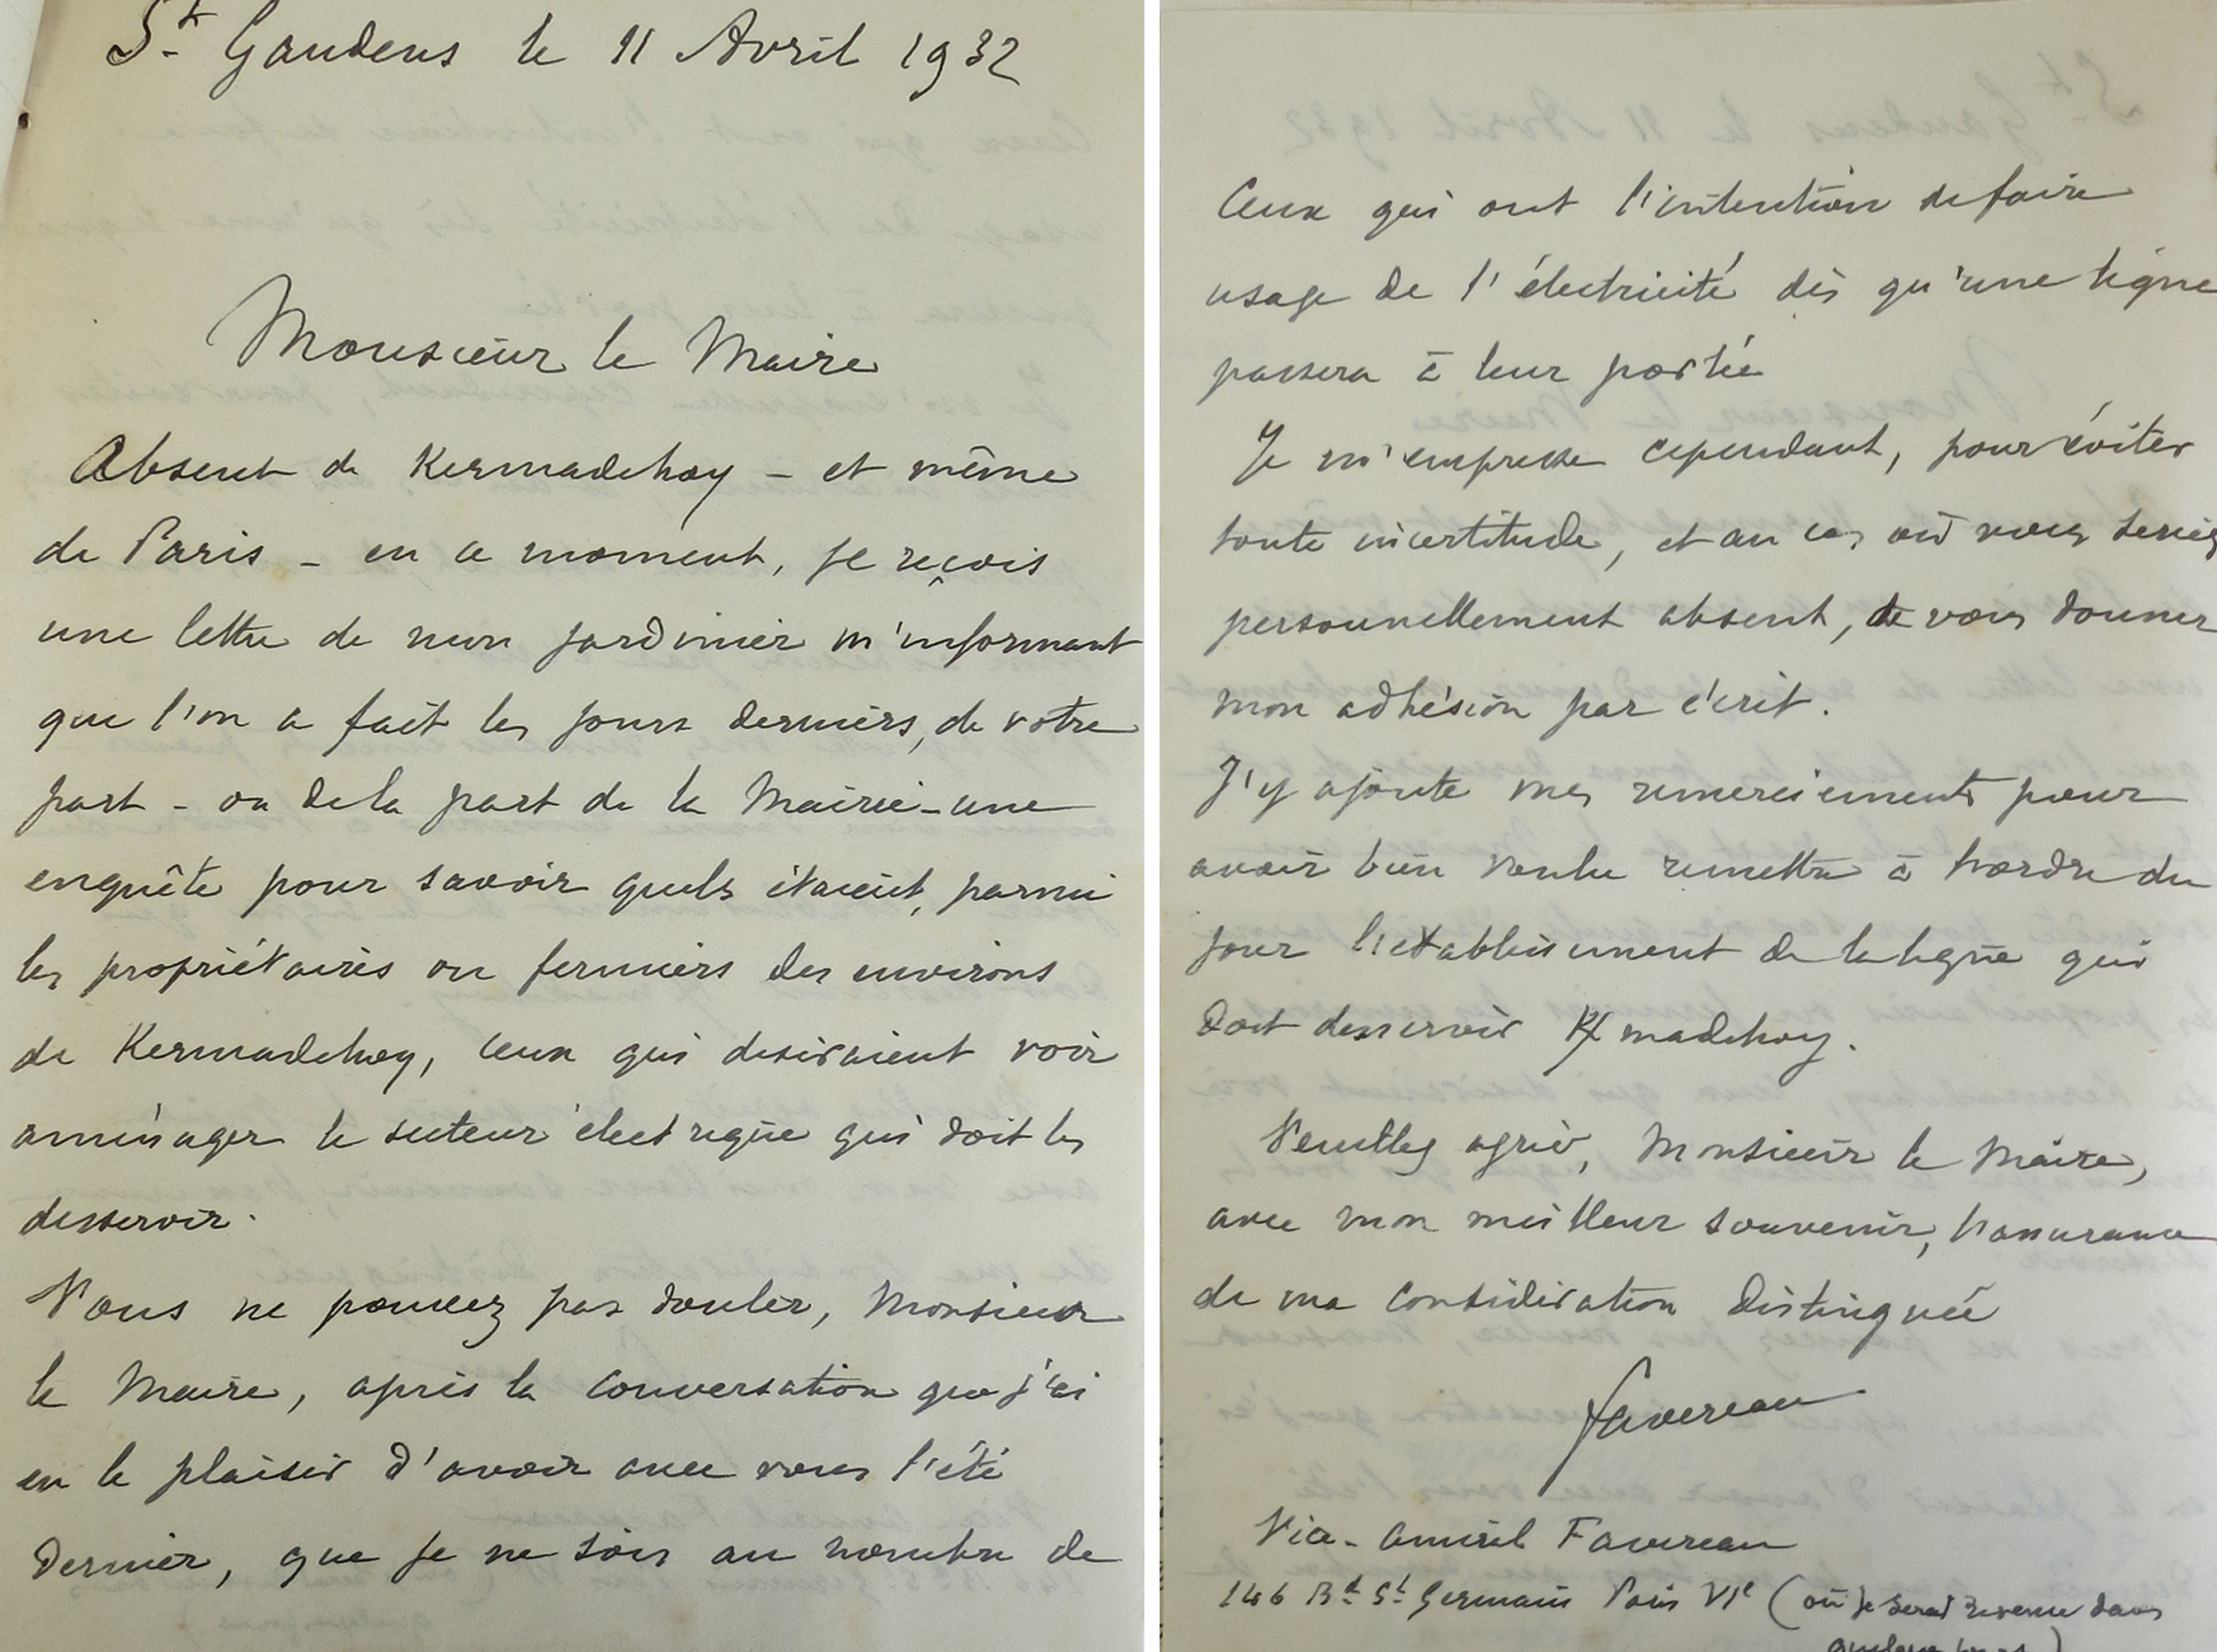 St Gaudens le 11 Avril 1932
Monsieur le Maire
Absent de Kermadehoy – et même
de Paris – en ce moment, je reçois
une lettre de mon jardinier m'informant
que l'on a fait les jours derniers, de votre
part – ou de la part de la Mairie – une
enquête pour savoir quels étaient, parmi
les propriétaires ou fermiers des environs
de Kermadehoy, ceux qui desiraient voir
aménager le secteur électrique qui doit les
desservir.
Vous ne pouvez pas douter, Monsieur
le Maire, après la conversation que j'ai
eu le plaisir d'avoir avec vous l'été
dernier, que je ne sois au nombre de
Ceux qui ont l'intention de faire
usage de l'électricité dès qu'une ligne
passera à leur portée
Je m'empresse cependant, pour éviter
toute incertitude, et au cas où vous seriez
personnellement absent, de vous donner
mon adhésion par écrit.
J'y ajoute mes remerciements pour
avoir bien voulu remettre à l'ordre du
jour l'établissement de la ligne qui
doit desservir Kmadehoy.
Veuillez agréer, Monsieur le Maire,
avec mon meilleur souvenir, l'assurance
de ma considération distinguée
Favereau
Vice-amiral Favereau
146 Bd St Germain Paris VIe (où je serai revenu dans
quelques jours)